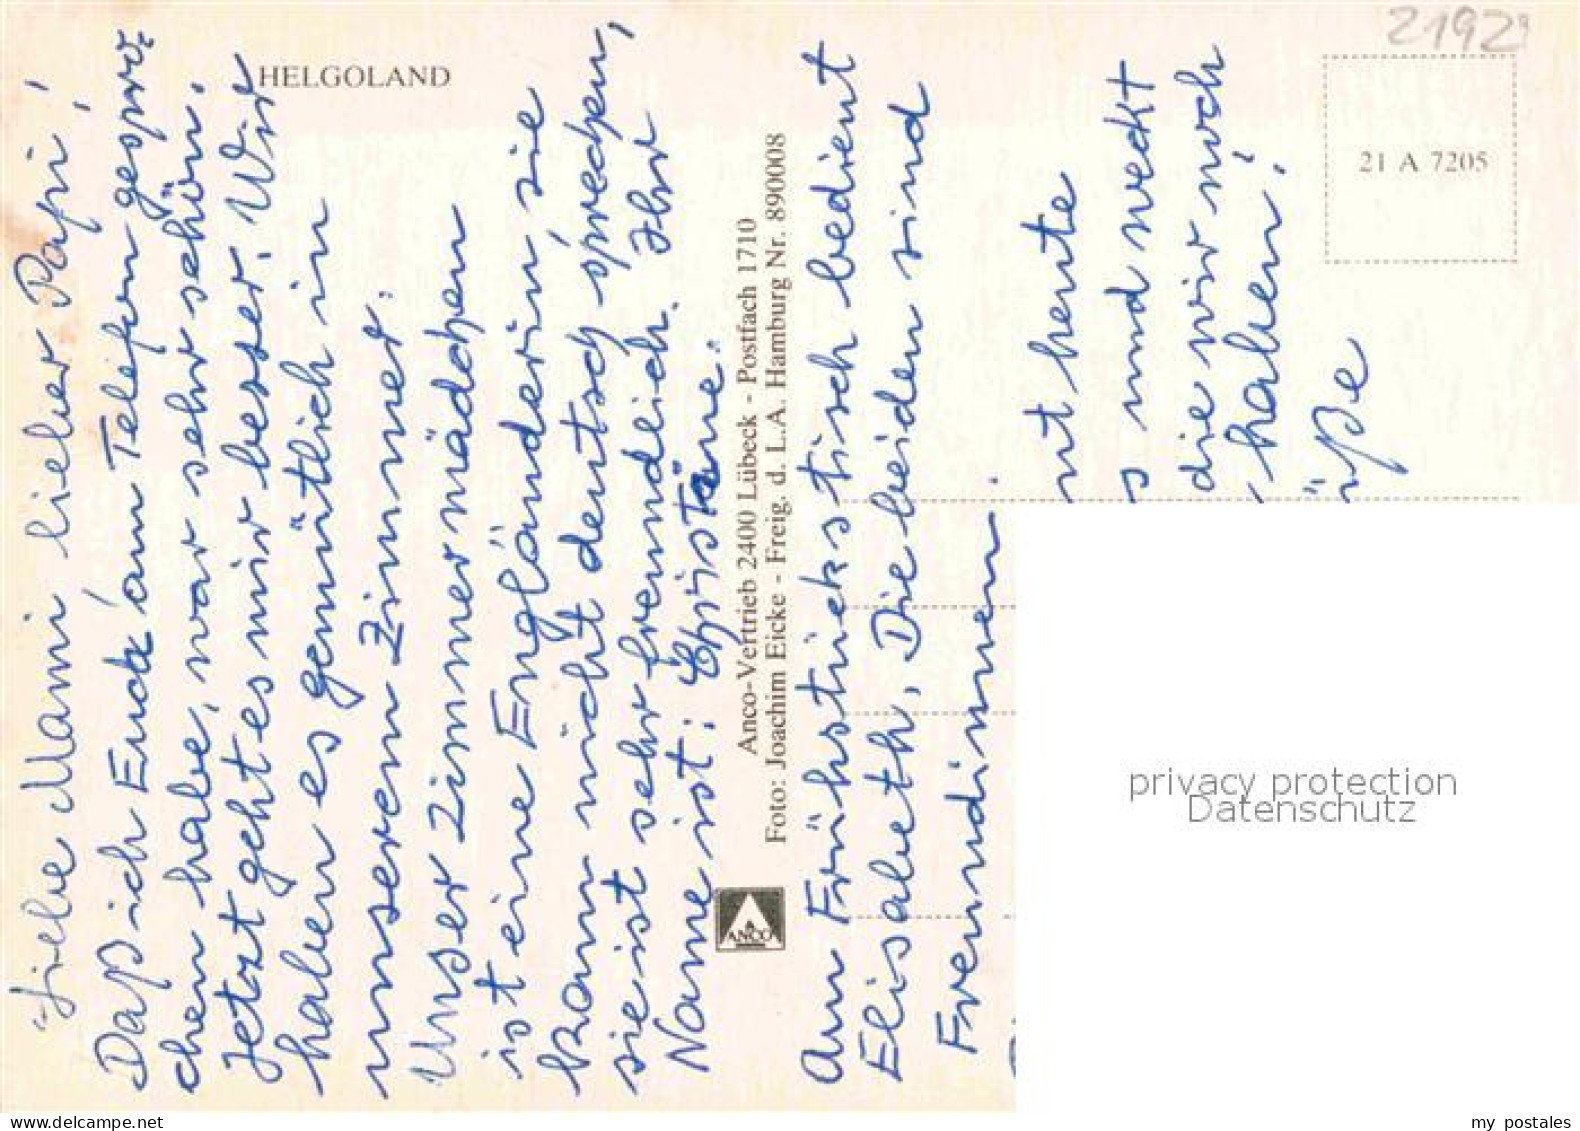 HELGOLAND
21929
21 A 7205
Liebe Mami lieber Papi!
Daß ich Euch am Telefon gespro-
chen habe, war sehr schön.
Jetzt geht es mir besser. Wir
haben es gemütlich in
unserem Zimmer.
Unser Zimmermädchen
ist eine Engländerin, sie
kann nicht deutsch sprechen,
sie ist sehr freundlich. Ihr
Name ist: Christäne.
Anco-Vertrieb 2400 Lübeck - Postfach 1710
Foto: Joachim Eicke - Freig. d. L.A. Hamburg Nr. 890008
ANCO
Am Frühstückstisch bedient
Elisabeth. Die beiden sind
Freundinnen.
nt heute
s und weckt
die wir noch
haben!
üße
privacy protection
Datenschutz
my postales